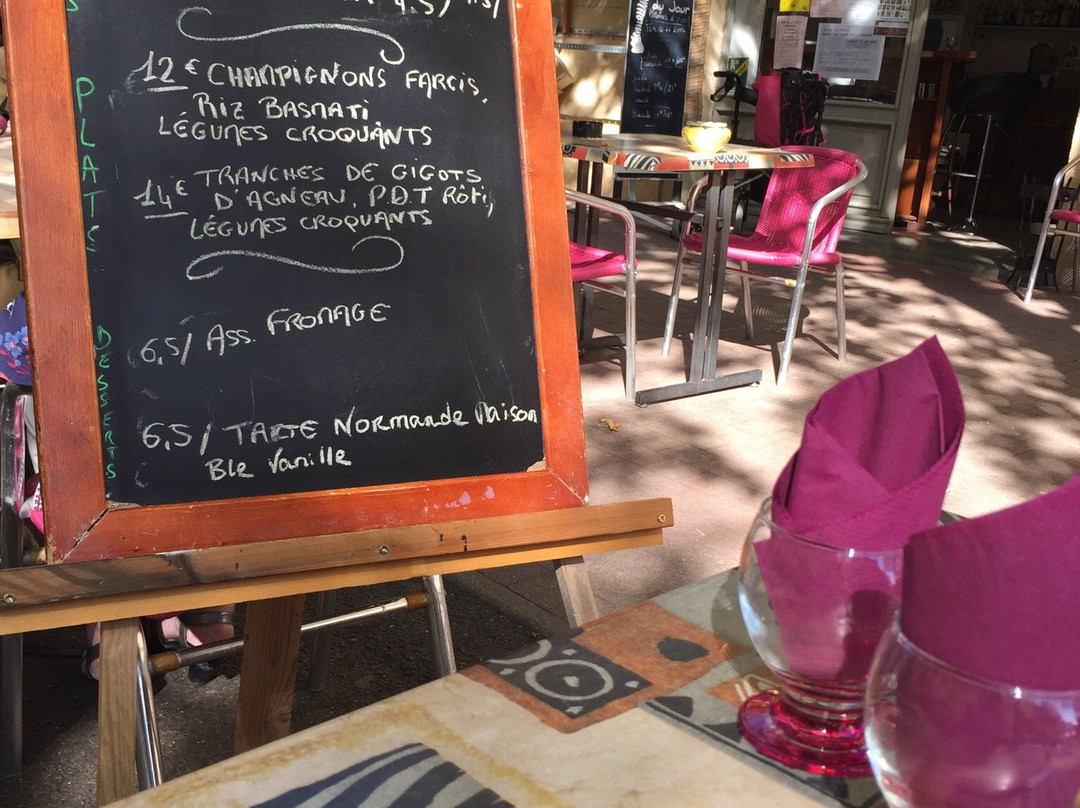 PLATS
12€ CHAMPIGNONS FARCIS,
RIZ BASMATI
LÉGUMES CROQUANTS
14€ TRANCHES DE GIGOTS
D'AGNEAU, P.D.T Rôti,
LÉGUMES CROQUANTS
DESSERTS
6,5/ Ass. FROMAGE
6,5/ TARTE NORMANDE Maison
Ble Vanille
du Jour